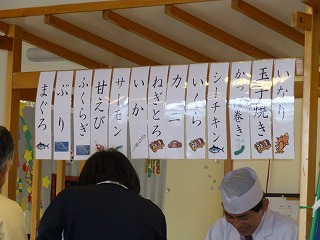 いなり
玉子焼き
かっぱ巻き
シーチキン
いくら
カニ
ねぎとろ
いか
サーモン
甘えび
ふくらぎ
ぶり
まぐろ